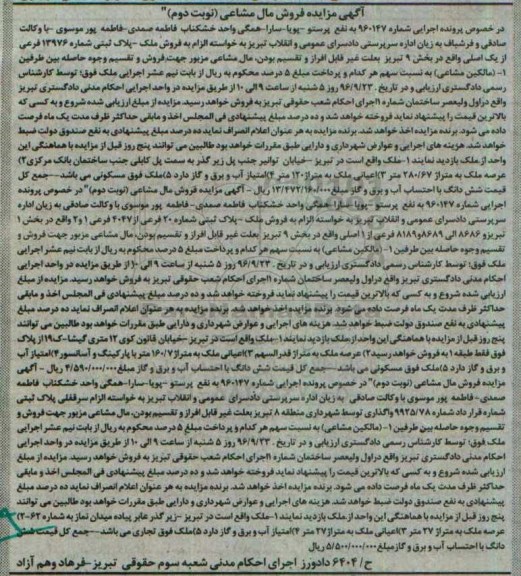 آگهی مزایده فروش مال مشاعی (نوبت دوم)"
در خصوص پرونده اجرایی شماره ۹۶۰۱۴۷ به نفع پرستو -پویا-سارا-همگی واحد خشکناب فاطمه صمدی-فاطمه پور موسوی -با وکالت
صادقی و فرشباف به زیان اداره سرپرستی دادسرای عمومی و انقلاب تبریز به خواسته الزام به فروش ملک -پلاک ثبتی شماره ۱۳۹۷۶ فرعی
از یک اصلی واقع در بخش ۹ تبریز بعلت غیر قابل افراز و تقسیم بودن، مال مشاعی مزبور جهت فروش و تقسیم وجوه حاصله بین طرفین
۱- (مالکین مشاعی) به نسبت سهم هر کدام و پرداخت مبلغ ۵ درصد محکوم به ریال از بابت نیم عشر اجرایی ملک فوق؛ توسط کارشناس
رسمی دادگستری ارزیابی و در تاریخ ۹۶/۹/۲۳ روز ۵ شنبه از ساعت ۹ الی ۱۰ از طریق مزایده در واحد اجرایی احکام مدنی دادگستری تبریز
واقع دراول ولیعصر ساختمان شماره ۱اجرای احکام شعب حقوقی تبریز به فروش خواهد رسید. مزایده از مبلغ ارزیابی شده شروع و به کسی که
بالاترین قیمت را پیشنهاد نماید فروخته خواهد شد و ده درصد مبلغ پیشنهادی فی المجلس اخذ و مابقی حداکثر ظرف مدت یک ماه فرصت
داده می شود. برنده مزایده اخذ خواهد شد. برنده مزایده به هر عنوان اعلام انصراف نماید ده درصد مبلغ پیشنهادی به نفع صندوق دولت ضبط
خواهد شد. هزینه های اجرایی و عوارض شهرداری و دارایی طبق مقررات خواهد بود طالبین می توانند پنج روز قبل از مزایده با هماهنگی این
واحد از ملک بازدید نمایند ۱-ملک واقع است در تبریز -خیابان توانیر جنب پل زیر گذر به سمت پل کابلی جنب ساختمان بانک مرکزی۲)
عرصه ملک به متراژ ۲۸۰/۶۷ متر ۳)اعیانی ملک به متراژ۱۲۰ متر ۴)امتیاز آب و برق و گاز دارد ۵)ملک فوق مسکونی می باشد—-جمع کل
قیمت شش دانگ با احتساب آب و برق و گاز مبلغ ۱۳/۴۷۲/۱۶۰/۰۰۰ ریال - آگهی مزایده فروش مال مشاعی (نوبت دوم)" در خصوص پرونده
اجرایی شماره ۹۶۰۱۴۷ به نفع پرستو -پویا-سارا-همگی واحد خشکناب فاطمه صمدی- فاطمه پور موسوی با وکالت صادقی به زیان اداره
سرپرستی دادسرای عمومی و انقلاب تبریز به خواسته الزام به فروش ملک -پلاک ثبتی شماره ۲۰ فرعی از۲۰۴۷ فرعی ۱ و۲ واقع در بخش ۱
تبریزو ۸۶۸۶ الی ۸۶۸۹و۸۱۸۹ فرعی از ۱ اصلی واقع در بخش ۹ تبریز بعلت غیر قابل افراز و تقسیم بودن، مال مشاعی مزبور جهت فروش و
تقسیم وجوه حاصله بین طرفین ۱- (مالکین مشاعی) به نسبت سهم هر کدام و پرداخت مبلغ ۵ درصد محکوم به ریال از بابت نیم عشر اجرایی
ملک فوق؛ توسط کارشناس رسمی دادگستری ارزیابی و در تاریخ ۹۶/۹/۲۳ روز ۵ شنبه از ساعت ۹ الی ۱۰ از طریق مزایده در واحد اجرایی
احکام مدنی دادگستری تبریز واقع دراول ولیعصر ساختمان شماره ۱اجرای احکام شعب حقوقی تبریز به فروش خواهد رسید. مزایده از مبلغ
ارزیابی شده شروع و به کسی که بالاترین قیمت را پیشنهاد نماید فروخته خواهد شد و ده درصد مبلغ پیشنهادی فی المجلس اخذ و مابقی
حداکثر ظرف مدت یک ماه فرصت داده می شود. برنده مزایده اخذ خواهد شد. برنده مزایده به هر عنوان اعلام انصراف نماید ده درصد مبلغ
پیشنهادی به نفع صندوق دولت ضبط خواهد شد. هزینه های اجرایی و عوارض شهرداری و دارایی طبق مقررات خواهد بود طالبین می توانند
پنج روز قبل از مزایده با هماهنگی این واحد از ملک بازدید نمایند ۱-ملک واقع است در تبریز -خیابان قانون کوی ۱۲ متری گیشا-ک۱۹ از پلاک
فوق فقط طبقه ۱ به فروش خواهد رسید۲) عرصه ملک به متراژ قدرالسهم ۳)اعیانی ملک به متراژ ۱۶۰/۷ متر با پارکینگ و آسانسور ۴)امتیاز آب
و برق و گاز دارد ۵)ملک فوق مسکونی می باشد—-جمع کل قیمت شش دانگ با احتساب آب و برق و گاز مبلغ ۴/۵۹۰/۰۰۰/۰۰۰ ریال - آگهی
مزایده فروش مال مشاعی (نوبت دوم)" در خصوص پرونده اجرایی شماره ۹۶۰۱۴۷ به نفع پرستو -پویا-سارا-همگی واحد خشکناب فاطمه
صمدی- فاطمه پور موسوی با وکالت صادقی به زیان اداره سرپرستی دادسرای عمومی و انقلاب تبریز به خواسته الزام سرقفلی پلاک ثبتی
شماره قرار داد شماره ۹۹۲۵/۷۸ واگذاری توسط شهرداری منطقه ۸ تبریز بعلت غیر قابل افراز و تقسیم بودن، مال مشاعی مزبور جهت فروش و
تقسیم وجوه حاصله بین طرفین ۱- (مالکین مشاعی) به نسبت سهم هر کدام و پرداخت مبلغ ۵ درصد محکوم به ریال از بابت نیم عشر اجرایی
ملک فوق؛ توسط کارشناس رسمی دادگستری ارزیابی و در تاریخ ۹۶/۹/۲۳ روز ۵ شنبه از ساعت ۹ الی ۱۰ از طریق مزایده در واحد اجرایی
احکام مدنی دادگستری تبریز واقع دراول ولیعصر ساختمان شماره ۱اجرای احکام شعب حقوقی تبریز به فروش خواهد رسید. مزایده از مبلغ
ارزیابی شده شروع و به کسی که بالاترین قیمت را پیشنهاد نماید فروخته خواهد شد و ده درصد مبلغ پیشنهادی فی المجلس اخذ و مابقی
حداکثر ظرف مدت یک ماه فرصت داده می شود. برنده مزایده اخذ خواهد شد. برنده مزایده به هر عنوان اعلام انصراف نماید ده درصد مبلغ
پیشنهادی به نفع صندوق دولت ضبط خواهد شد. هزینه های اجرایی و عوارض شهرداری و دارایی طبق مقررات خواهد بود طالبین می توانند
پنج روز قبل از مزایده با هماهنگی این واحد از ملک بازدید نمایند ۱-ملک واقع است در تبریز -زیر گذر عابر پیاده میدان نماز به شماره ۶۲-۲)
عرصه ملک به متراژ ۲۷ متر ۳)اعیانی ملک به متراژ ۲۷ متر ۴)امتیاز آب و برق و گاز دارد ۵)ملک فوق تجاری می باشد—-جمع کل قیمت شش
دانگ با احتساب آب و برق و گاز مبلغ ۵/۵۰۰/۰۰۰/۰۰۰ ریال
ح/ ۶۴۰۴ دادورز اجرای احکام مدنی شعبه سوم حقوقی تبریز-فرهاد وهم آزاد